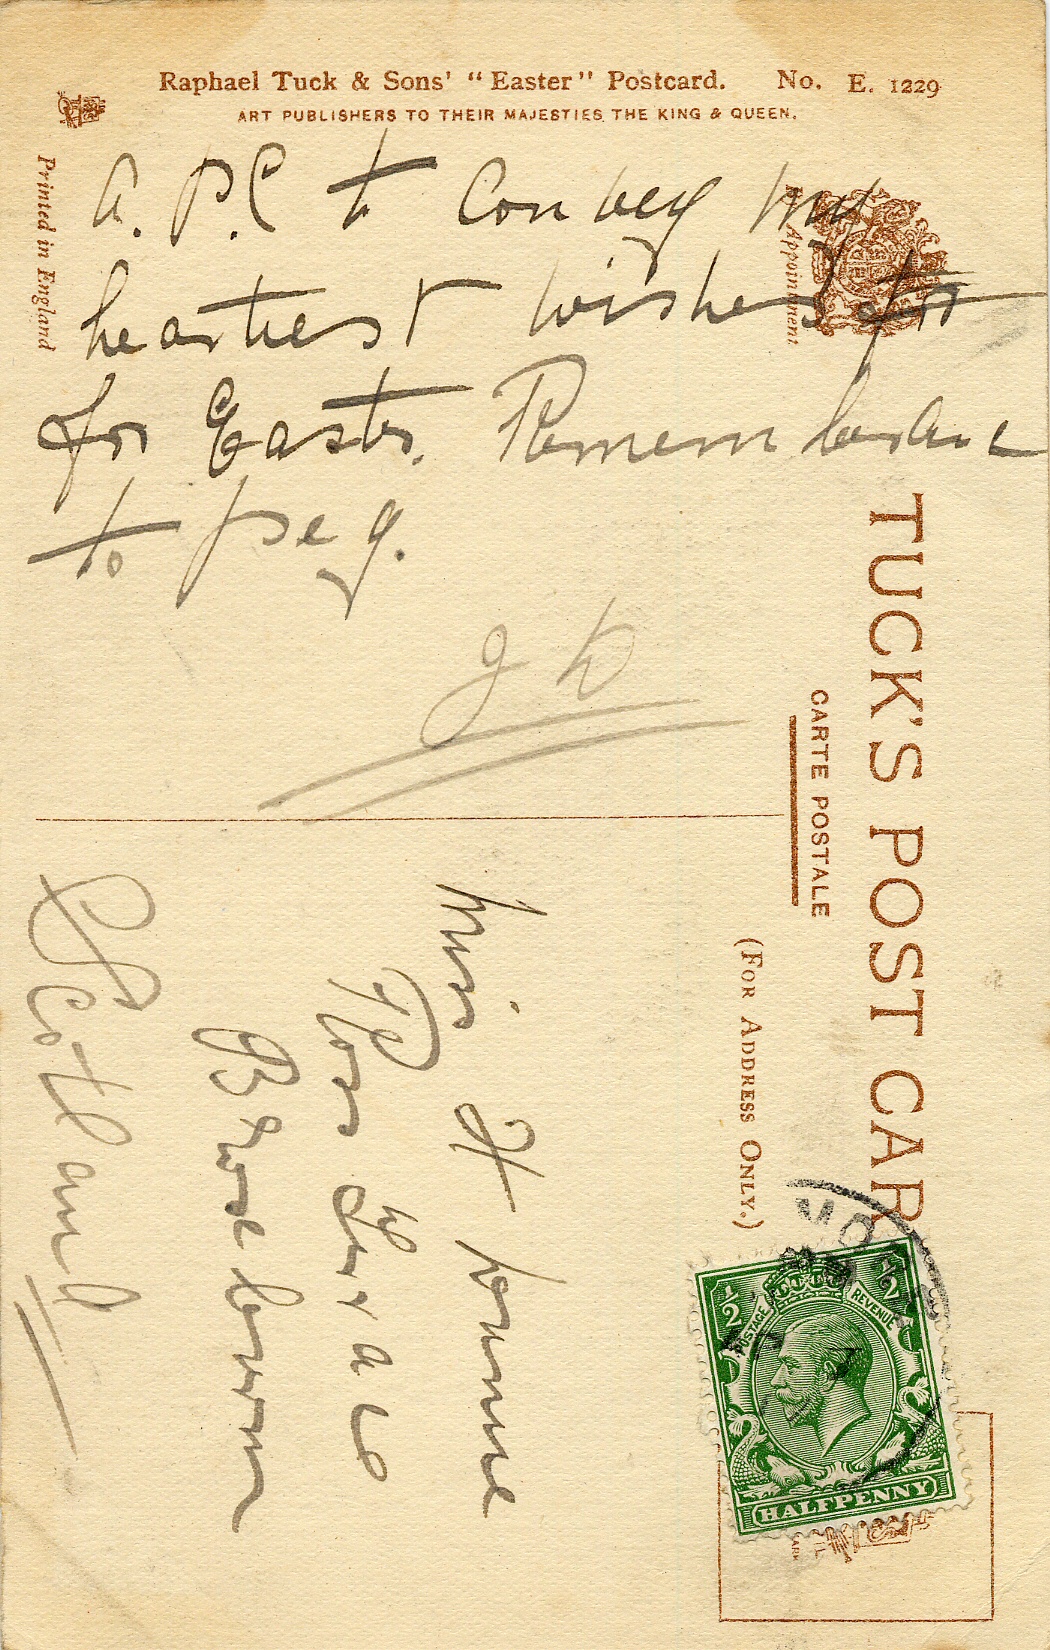 Raphael Tuck & Sons' "Easter" Postcard. No. E. 1229
ART PUBLISHERS TO THEIR MAJESTIES THE KING & QUEEN.
Printed in England
Appointment
A. P.C to Convey my
heartiest wishes for
for Easter. Remembrance
to Peg.
TUCK'S POST CAR
CARTE POSTALE
(FOR ADDRESS ONLY.)
Miss H
Ross
Scotland
1/2 1/2
POSTAGE REVENUE
HALFPENNY